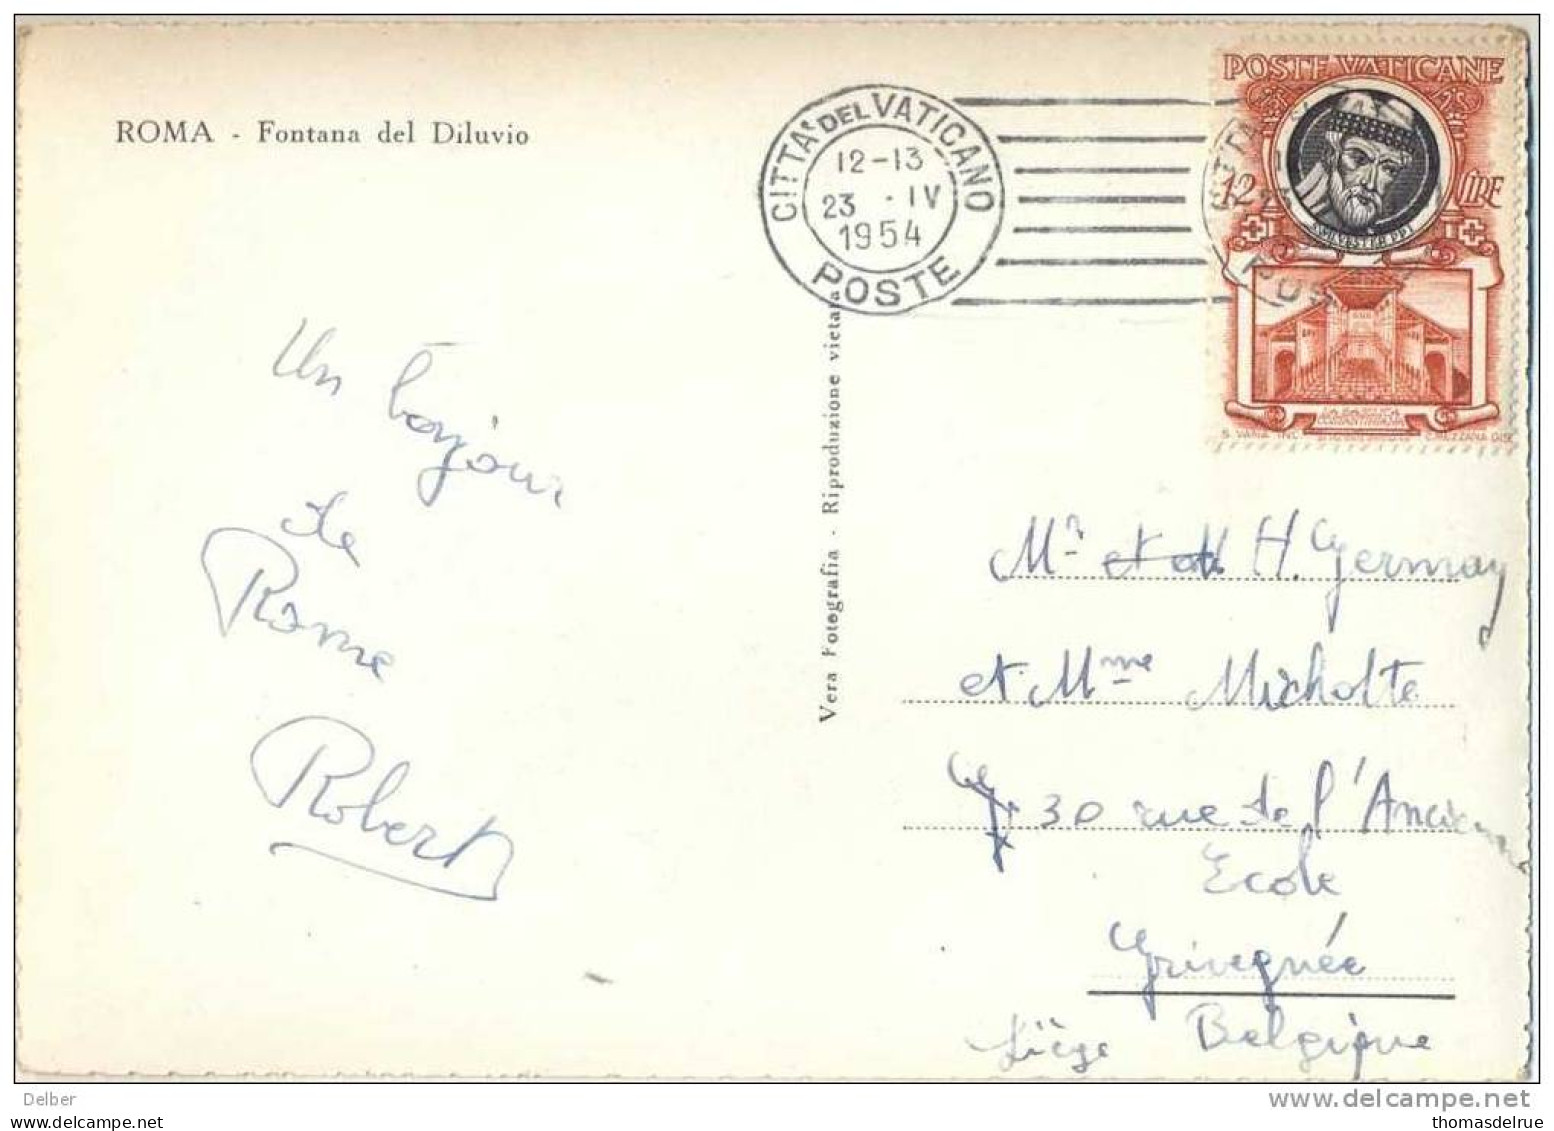 ROMA - Fontana del Diluvio
CITTA' DEL VATICANO
12-13
23 . IV
1954
POSTE
POSTE VATICANE
12 LIRE
S. SILVESTER PP I
Un bonjour
de
Rome
Robert
Vera Fotografia - Riproduzione vietata
Mr et M H. Germay
et Mme Micholte
30 rue de l'Ancienne
Ecole
Grivegnée
Liège Belgique
Delber
www.delcampe.net
thomasdelrue